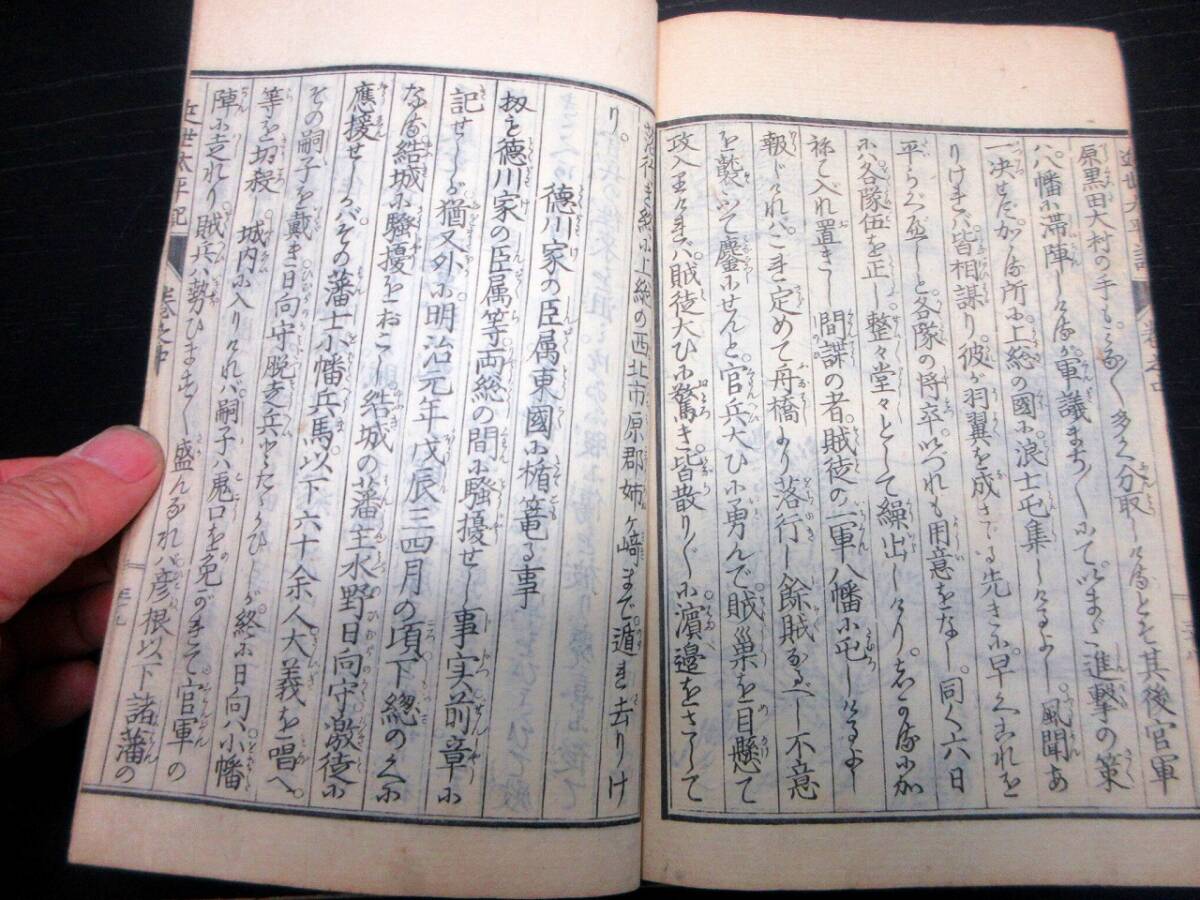 原黒田大村の手もみなく多く分取しけるとぞ其後官軍
ハ八幡に滞陣しけるが軍議まちまちにていまだ進撃の策
一决せだかる所に上総の國に浪士屯集しけるよし風聞あ
りけきバ皆相謀り彼が羽翼を成さゞる先きに早くこれを
平らぐべしと各隊の将卒いづれも用意をなし同く六日
にハ各隊伍を正し整々堂々として繰出しけりあるに
祢て入れ置きし間諜の者賊徒の一軍八幡に屯しけるよし
報じけれバこれ定めて舟橋より落行し餘賊なるべし不意
を襲いて鏖にせんと官兵大ひに勇んで賊巣を目懸て
攻入りけれバ賊徒大ひに驚き皆散り〴〵に濱邊をさして
上総の西北市原郡姉ヶ﨑まで遁き去りけ
り。
徳川家の臣属東國に楯篭る事
扨も徳川家の臣属等両総の間に騒擾せし事実前章に
記せしが猶又外に明治元年戊辰三四月の頃下総のくに
なる結城に騒擾をおこし結城の藩主水野日向守激徒に
應援せしかバその藩士小幡兵馬以下六十余人大義を唱へ
その嗣子を戴き日向守脱走兵とたゝかひしが終に日向ハ小幡
等を切殺し城内に入りけれバ嗣子ハ虎口を免がれて官軍の
陣に走れり賊兵ハ勢ひますます盛んなれバ彦根以下諸藩の
近世太平記 巻之中